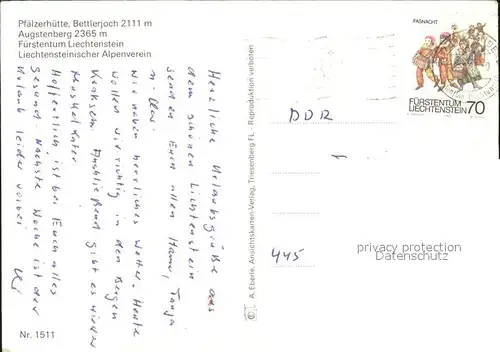 Pfälzerhütte, Bettlerjoch 2111 m
Augstenberg 2365 m
Fürstentum Liechtenstein
Liechtensteinischer Alpenverein
Herzliche Urlaubsgrüße aus
dem schönen Lichtenstein
senden Euch allen Hann, Tanja
Wir haben herrliches Wetter. Heute
wollen wir richtig in den Bergen
Kraxeln. Anschließend gibt es wieder
Muskelkater.
Hoffentlich ist bei Euch alles
gesund. Nächste Woche ist der
Urlaub leider vorbei
Nr. 1511
© A. Eberle, Ansichtskarten-Verlag, Triesenberg FL - Reproduktion verboten
FASNACHT
FÜRSTENTUM
LIECHTENSTEIN 70
DDR
445
privacy protection
Datenschutz